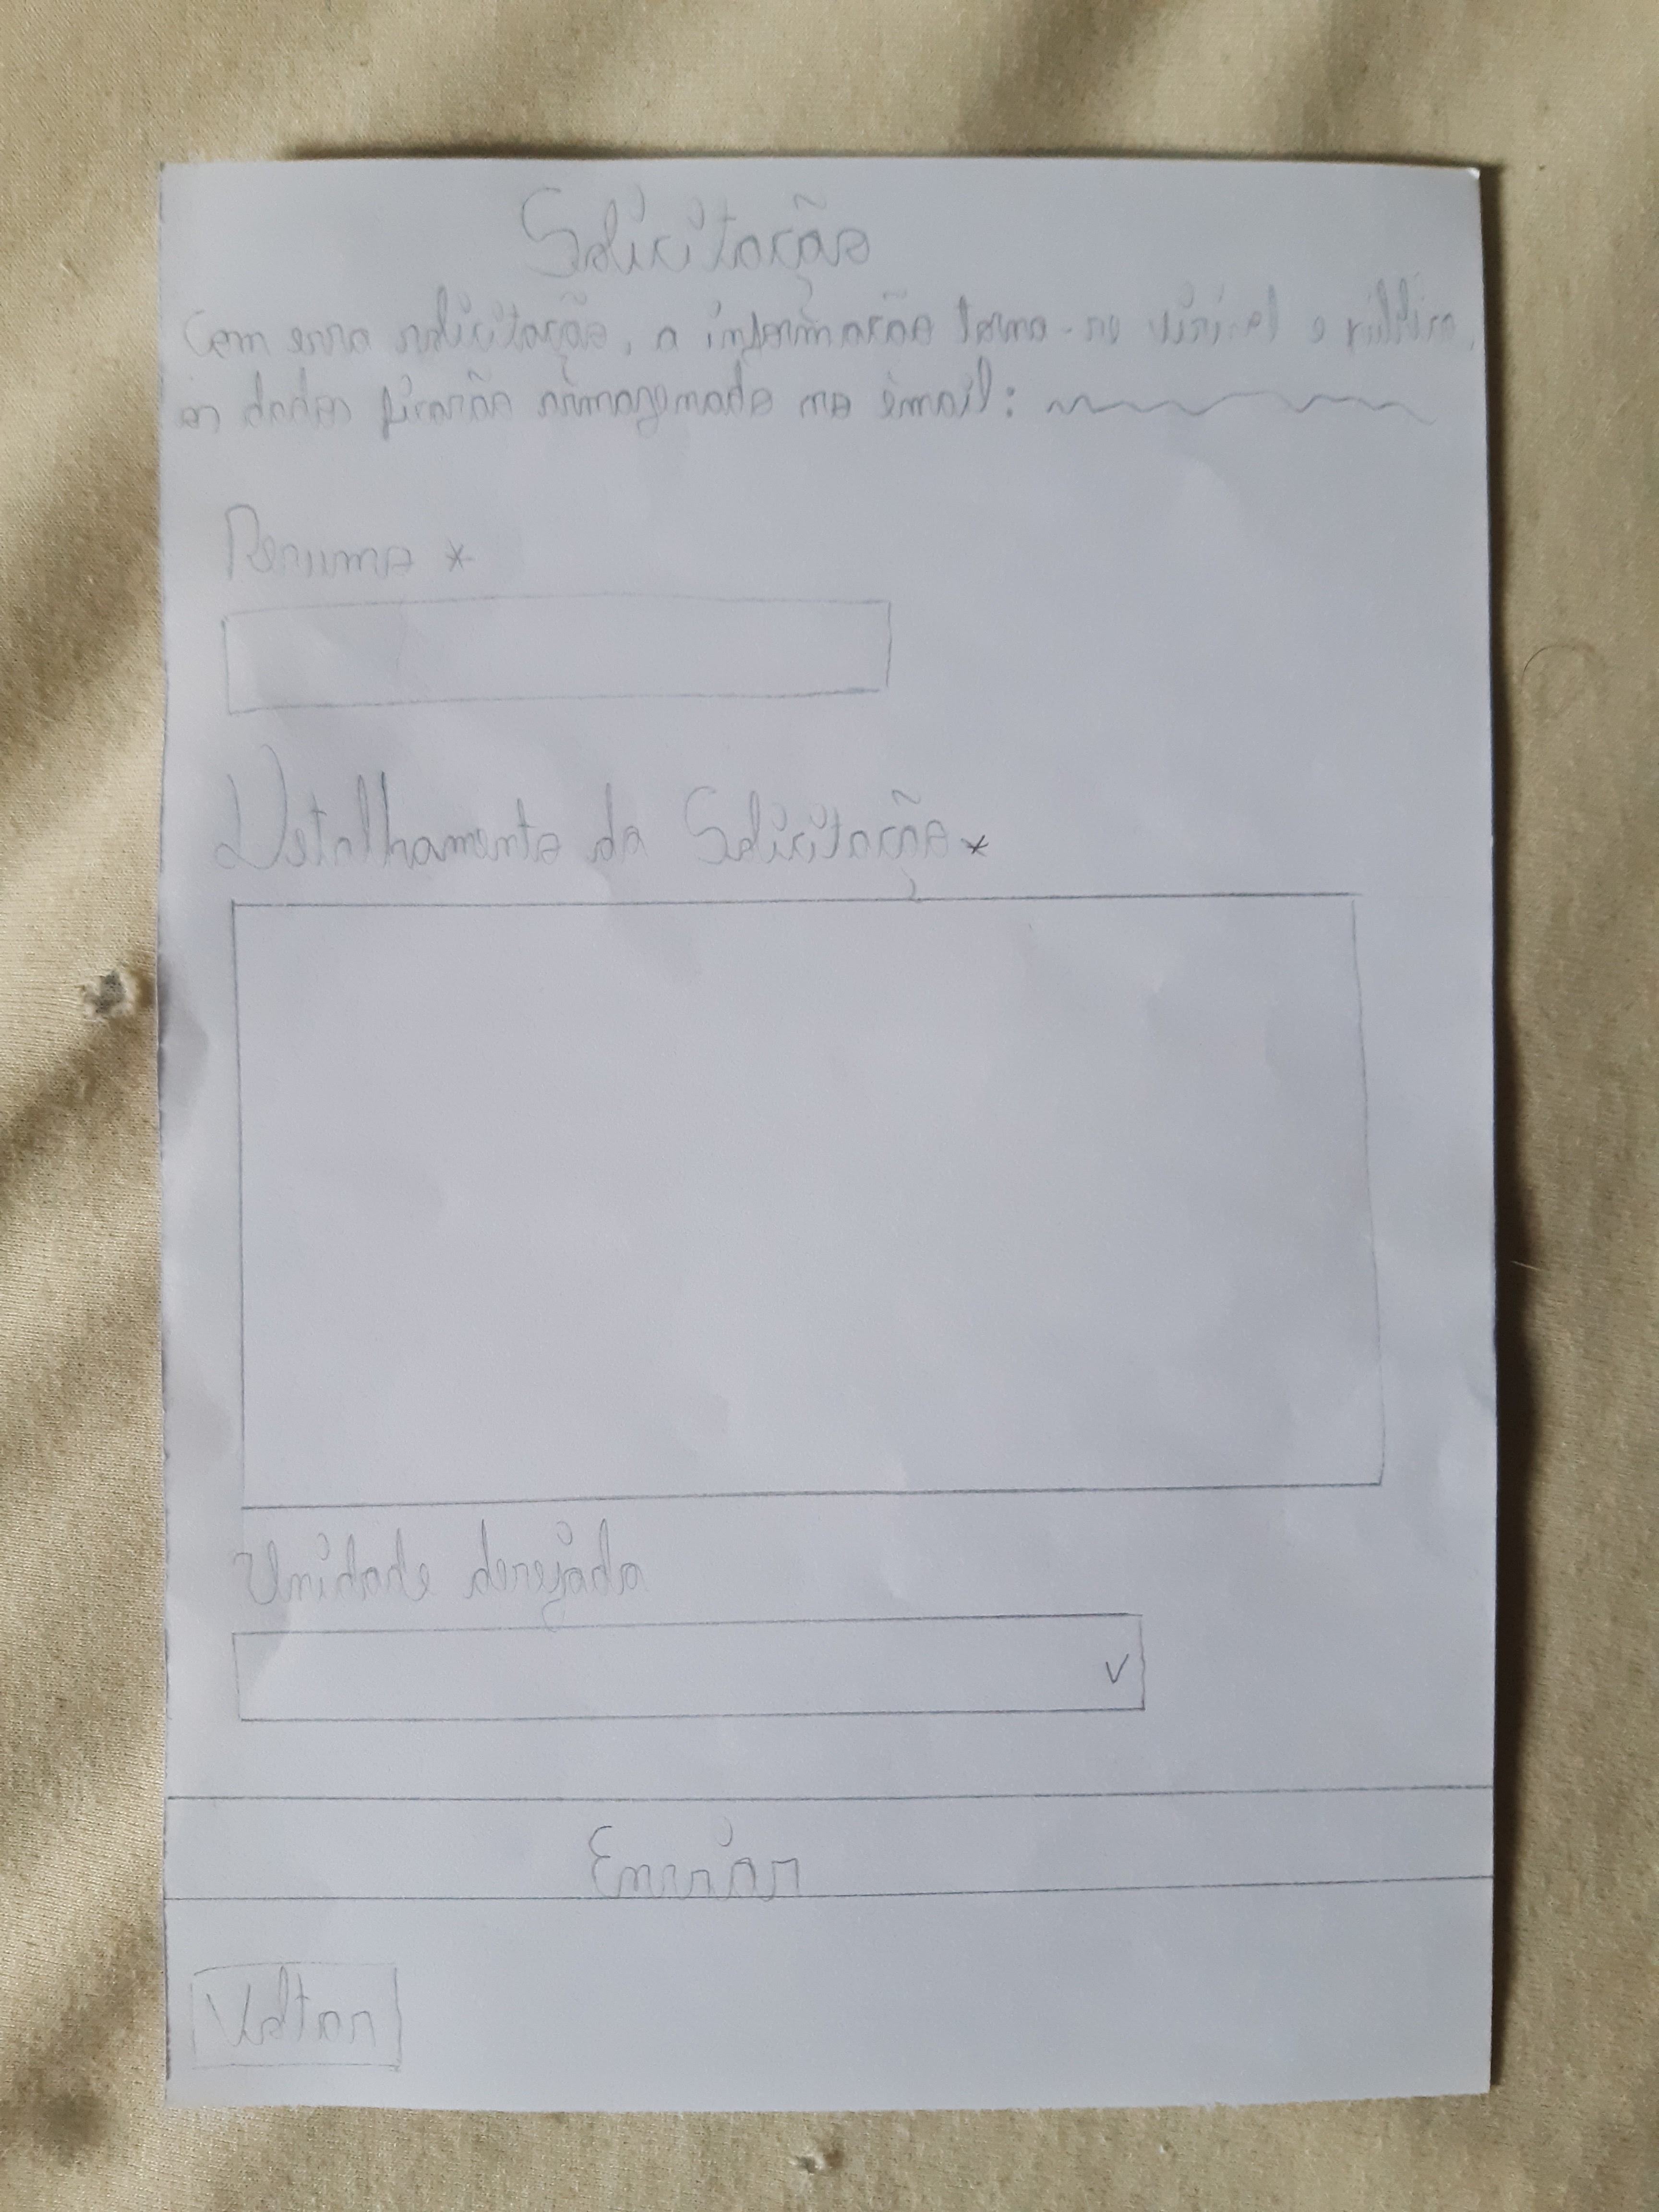 Solicitação
Com essa solicitação, a informação torna-se visível e pública,
os dados ficarão armazenado no émail:
Resumo *
Detalhamento da Solicitação*
Unidade desejada
V
Enviar
Voltar